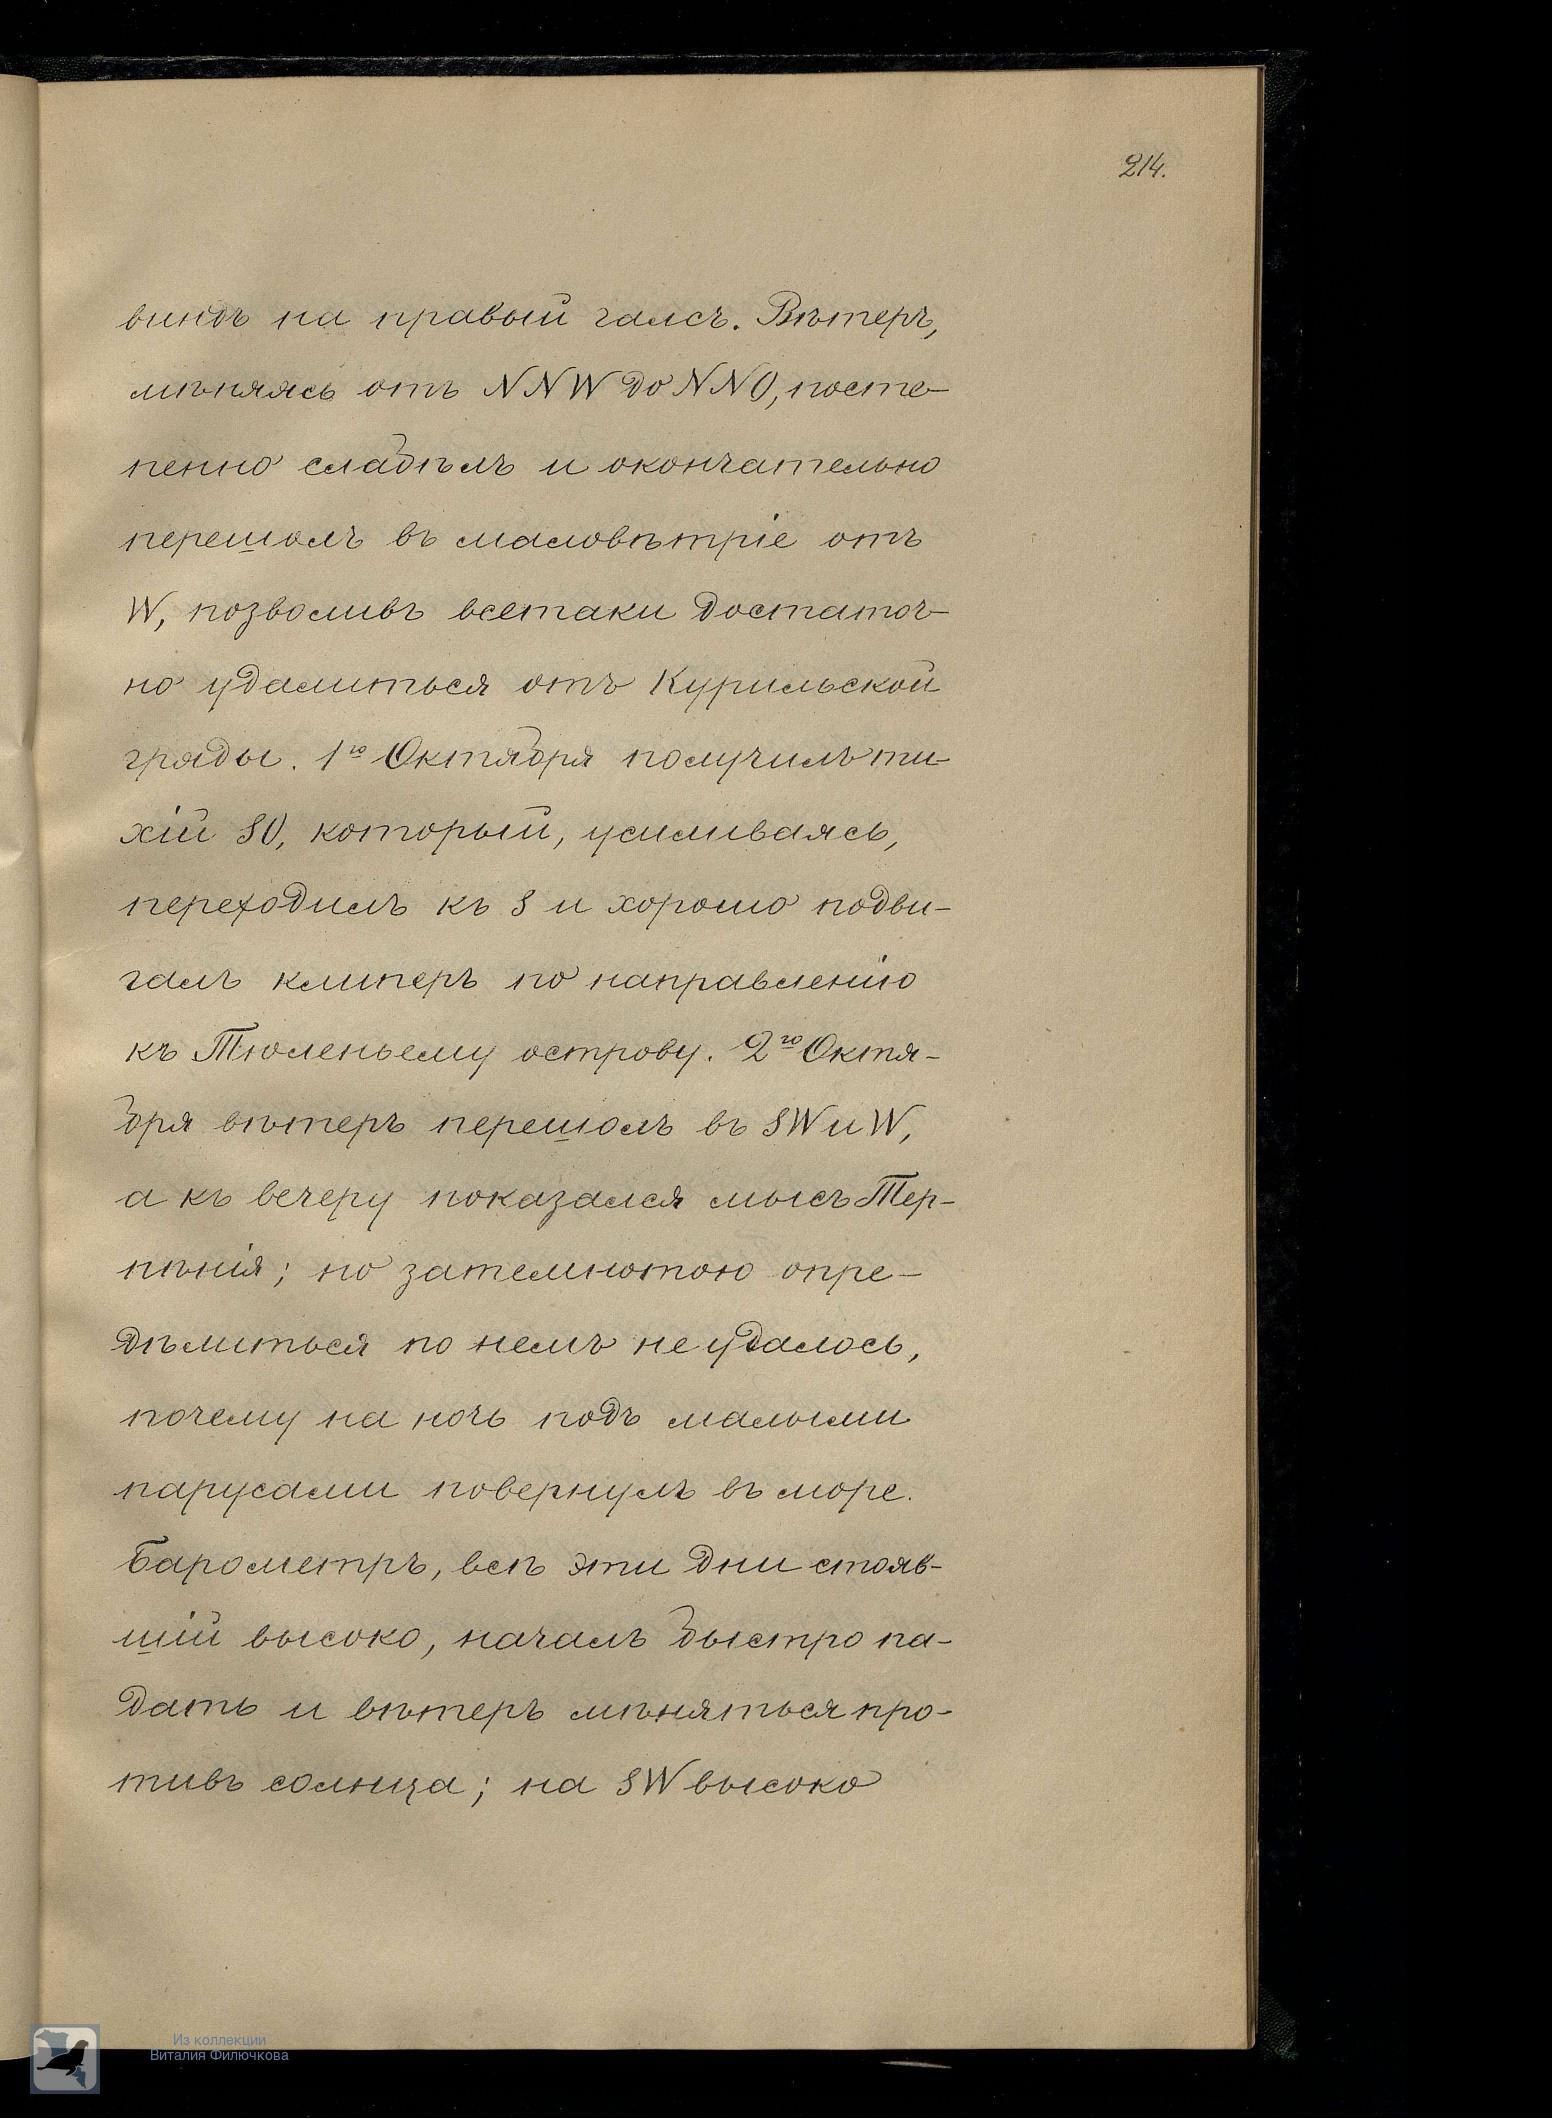 214.
виндъ на правый галсъ. Вѣтеръ,
мѣняясь отъ NNW до NNO, посте-
пенно слабѣлъ и окончательно
перешолъ въ маловѣтріе отъ
W, позволивъ всетаки достаточ-
но удалиться отъ Курильской
гряды. 1го Октября получилъ ти-
хій SO, который, усиливаясь,
переходилъ къ S и хорошо подви-
галъ клиперъ по направленію
къ Тюленьему острову. 2го Октя-
бря вѣтеръ перешолъ въ SW и W,
а къ вечеру показался мысъ Тер-
пѣнія; но за темнотою опре-
дѣлиться по немъ не удалось,
почему на ночь подъ малыми
парусами повернулъ въ море.
Барометръ, всѣ эти дни стояв-
шій высоко, началъ быстро па-
дать и вѣтеръ мѣняться про-
тивъ солнца; на SW высоко
Из коллекции
Виталия Филючкова